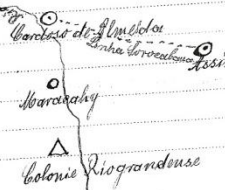 Cardoso de Almeida
Linha Sorocabana
Assi
Maracahy
Colonie Riograndense